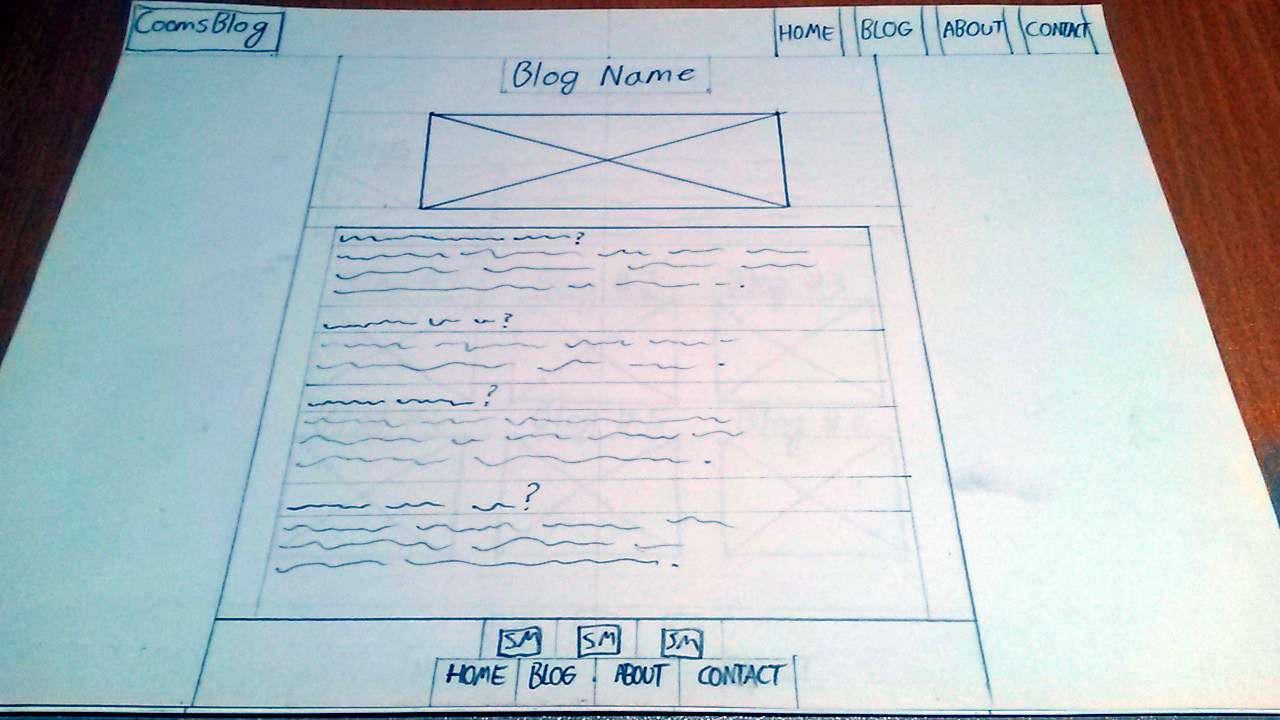 CoomsBlog
HOME BLOG ABOUT CONTACT
Blog Name
?
?
?
?
SM SM SM
HOME BLOG ABOUT CONTACT